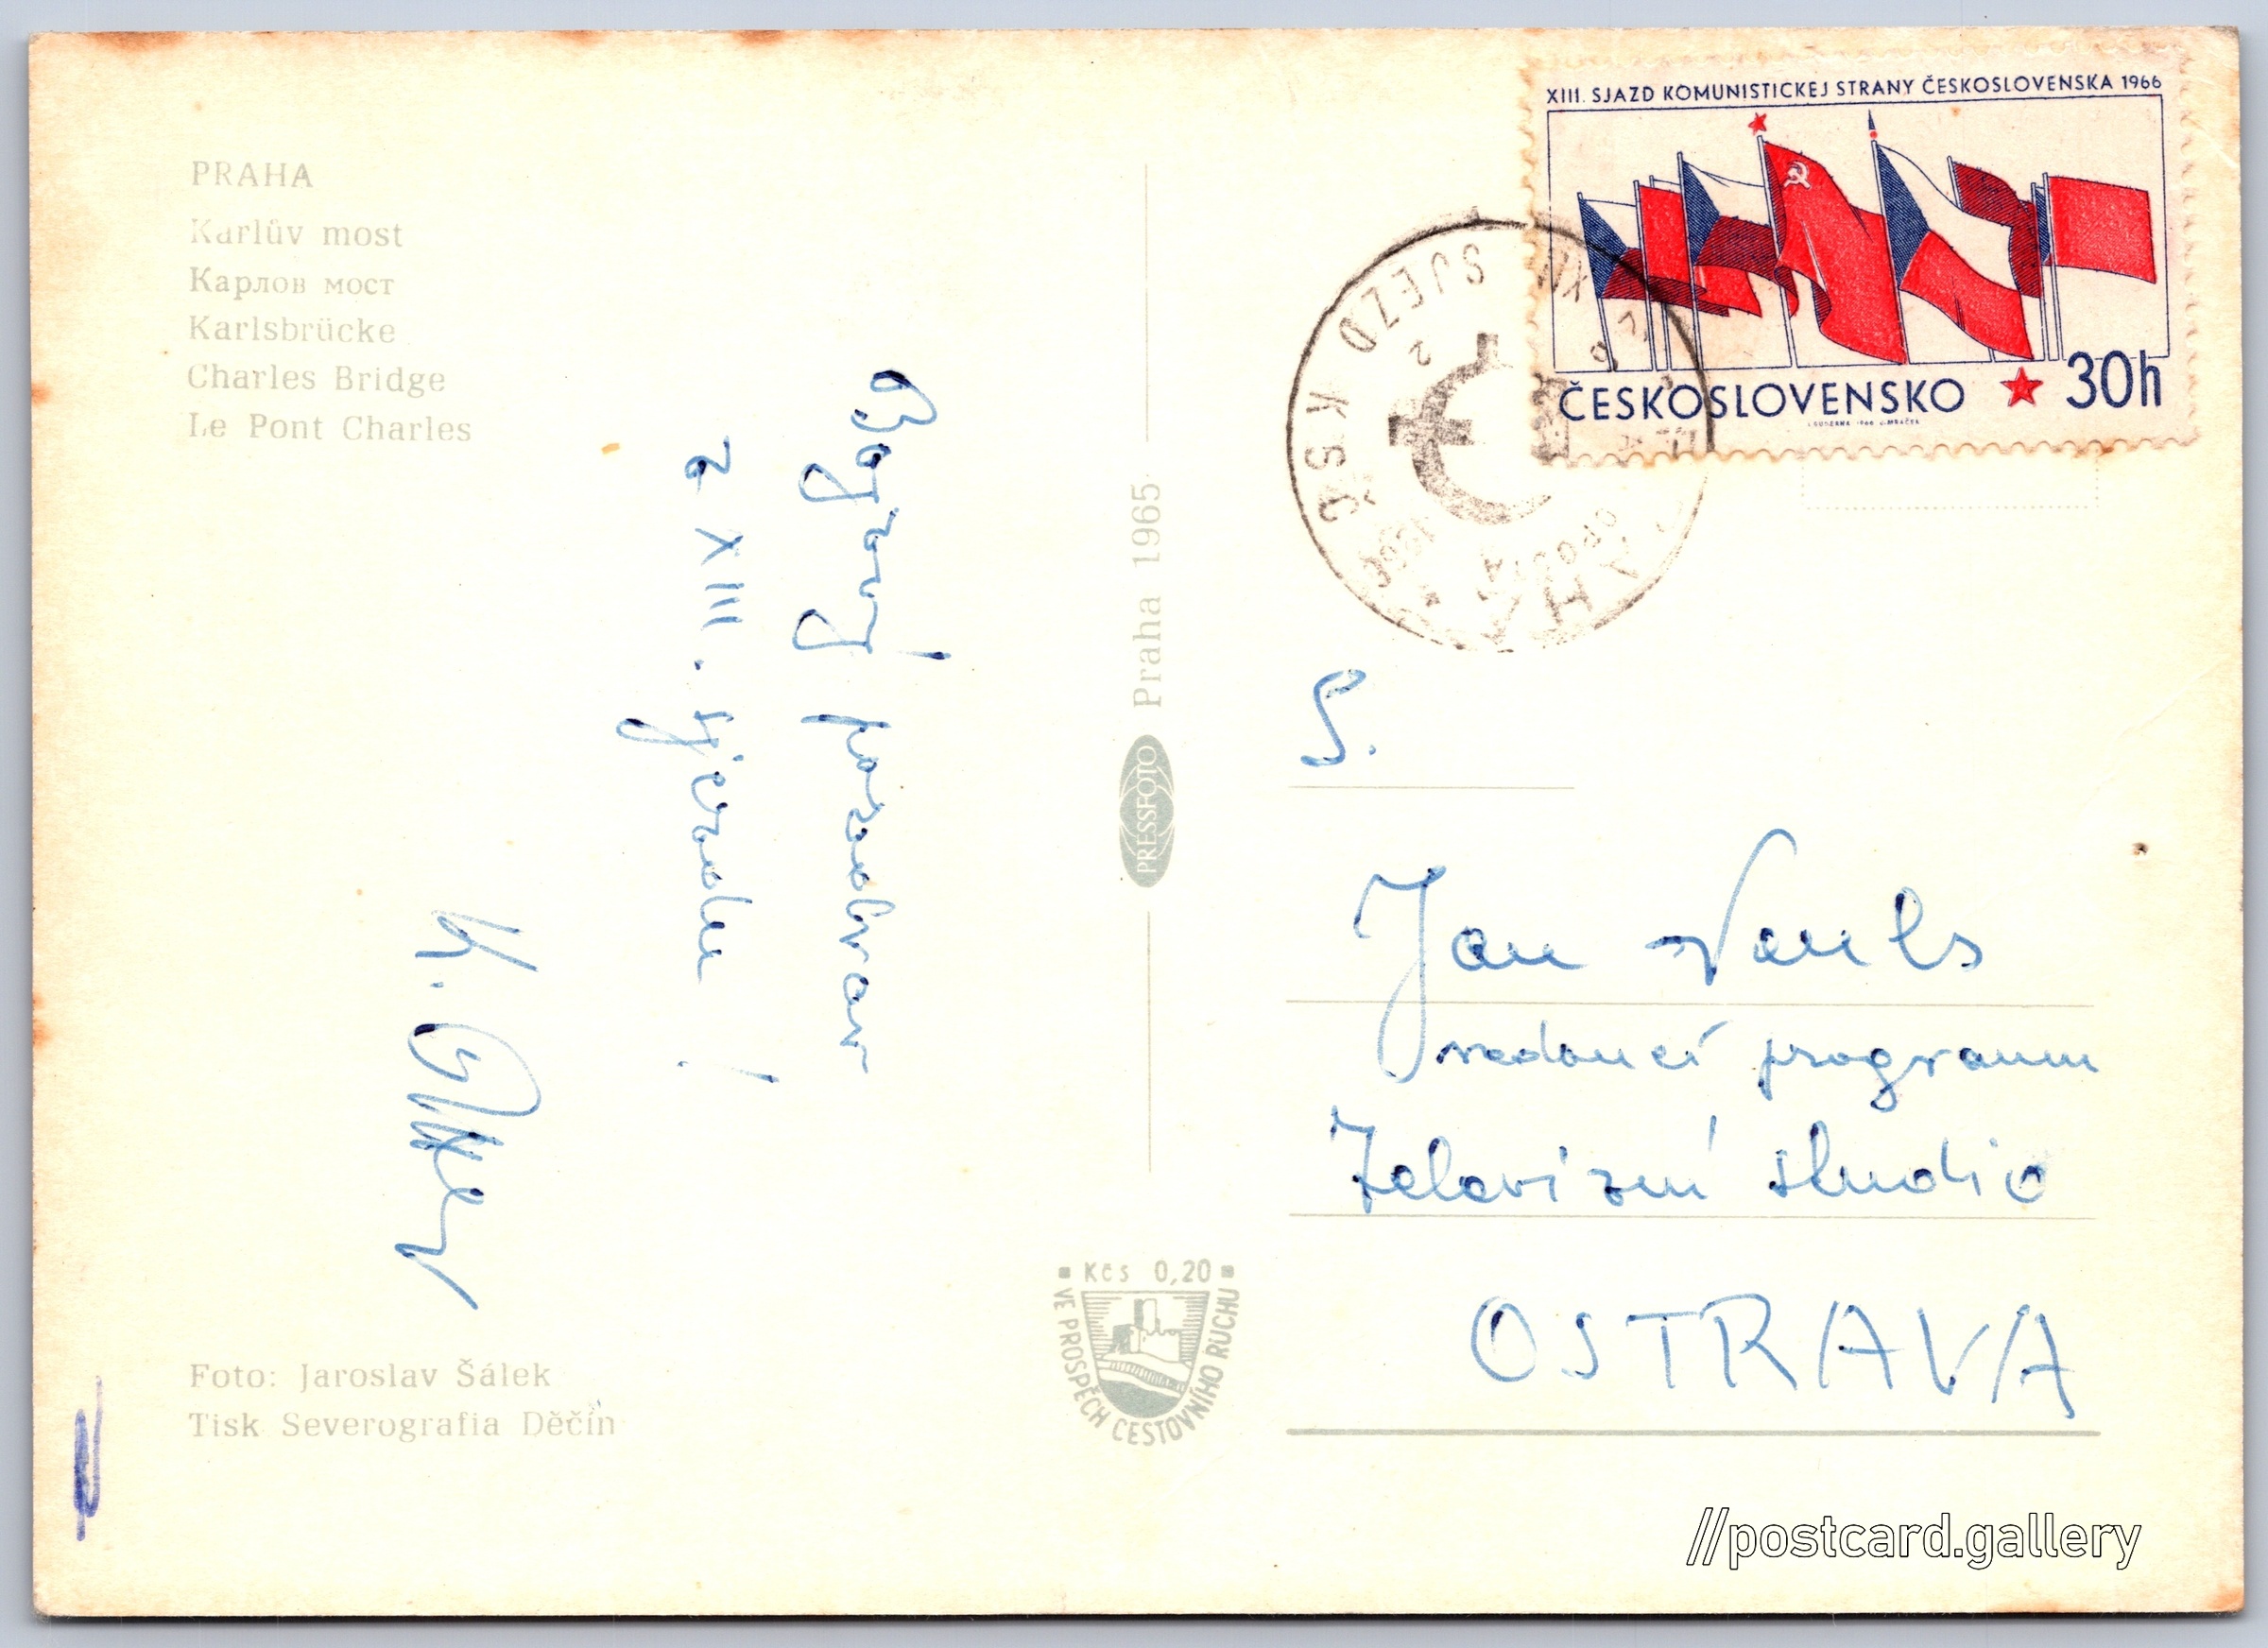 PRAHA
Karlův most
Карлов мост
Karlsbrücke
Charles Bridge
Le Pont Charles
pozdrav
z XIII. sjezdu!
K.
Foto: Jaroslav Šálek
Tisk Severografia Děčín
PRESSFOTO Praha 1965
Kčs 0,20
VE PROSPĚCH CESTOVNÍHO RUCHU
XIII. SJAZD KOMUNISTICKEJ STRANY ČESKOSLOVENSKA 1966
ČESKOSLOVENSKO 30h
SJEZD KSČ
S.
Jan
vedoucí program
Televizní studio
OSTRAVA
//postcard.gallery